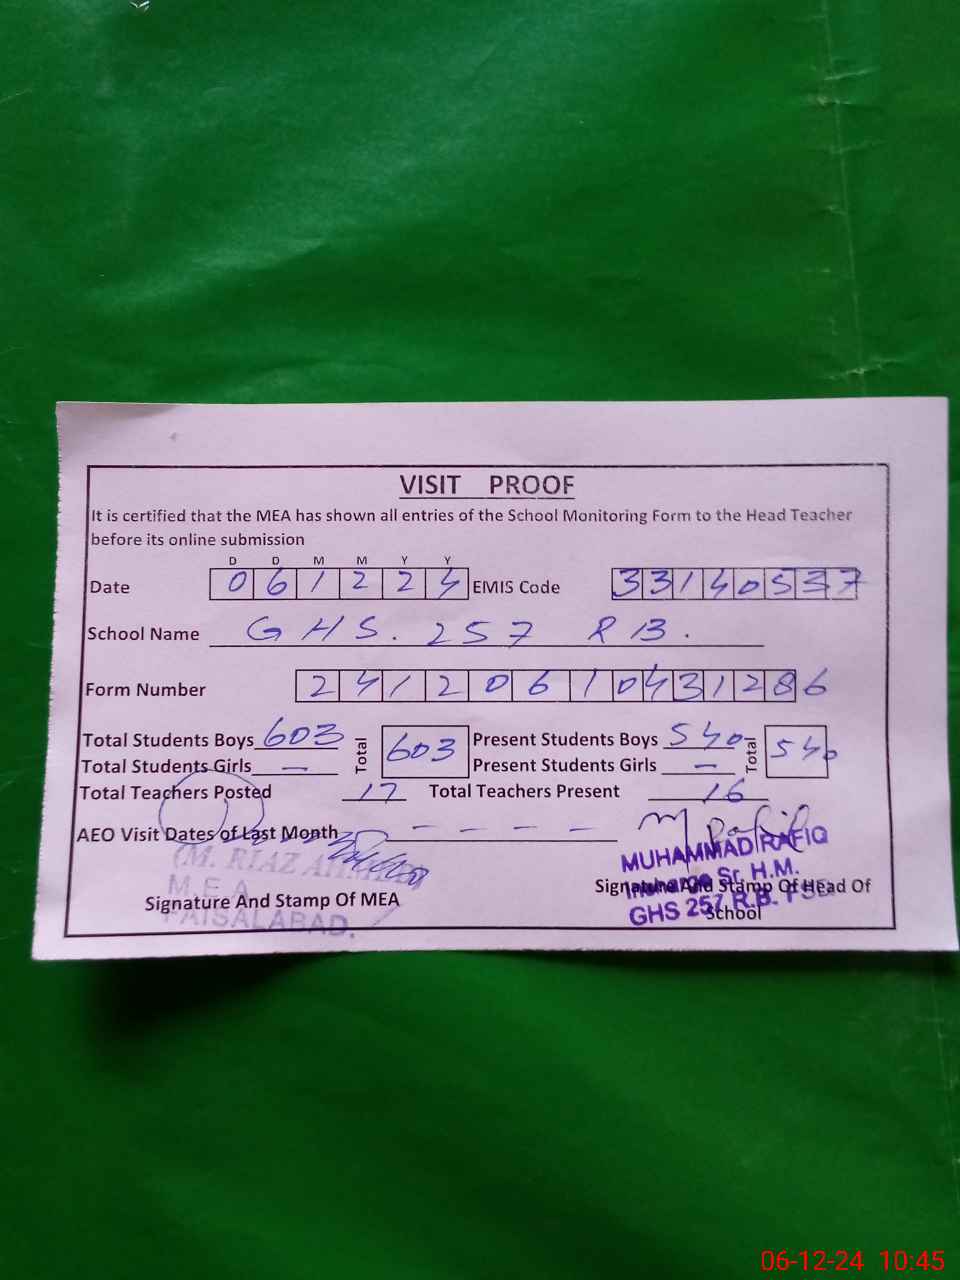 VISIT PROOF
It is certified that the MEA has shown all entries of the School Monitoring Form to the Head Teacher
before its online submission
D D M M Y Y
Date 061224 EMIS Code 33140537
School Name GHS. 257 RB.
Form Number 2412061043 1286
Total Students Boys 603 Total 603 Present Students Boys 540 Total 540
Total Students Girls — Present Students Girls —
Total Teachers Posted 17 Total Teachers Present 16
AEO Visit Dates of Last Month – – – –
M Rafiq
(M. RIAZ AHMED)
M.E.A
FAISALABAD.
Signature And Stamp Of MEA
MUHAMMAD RAFIQ
Incharge Sr. H.M.
GHS 257 R.B. FSD
Signature And Stamp Of Head Of
School
06-12-24 10:45